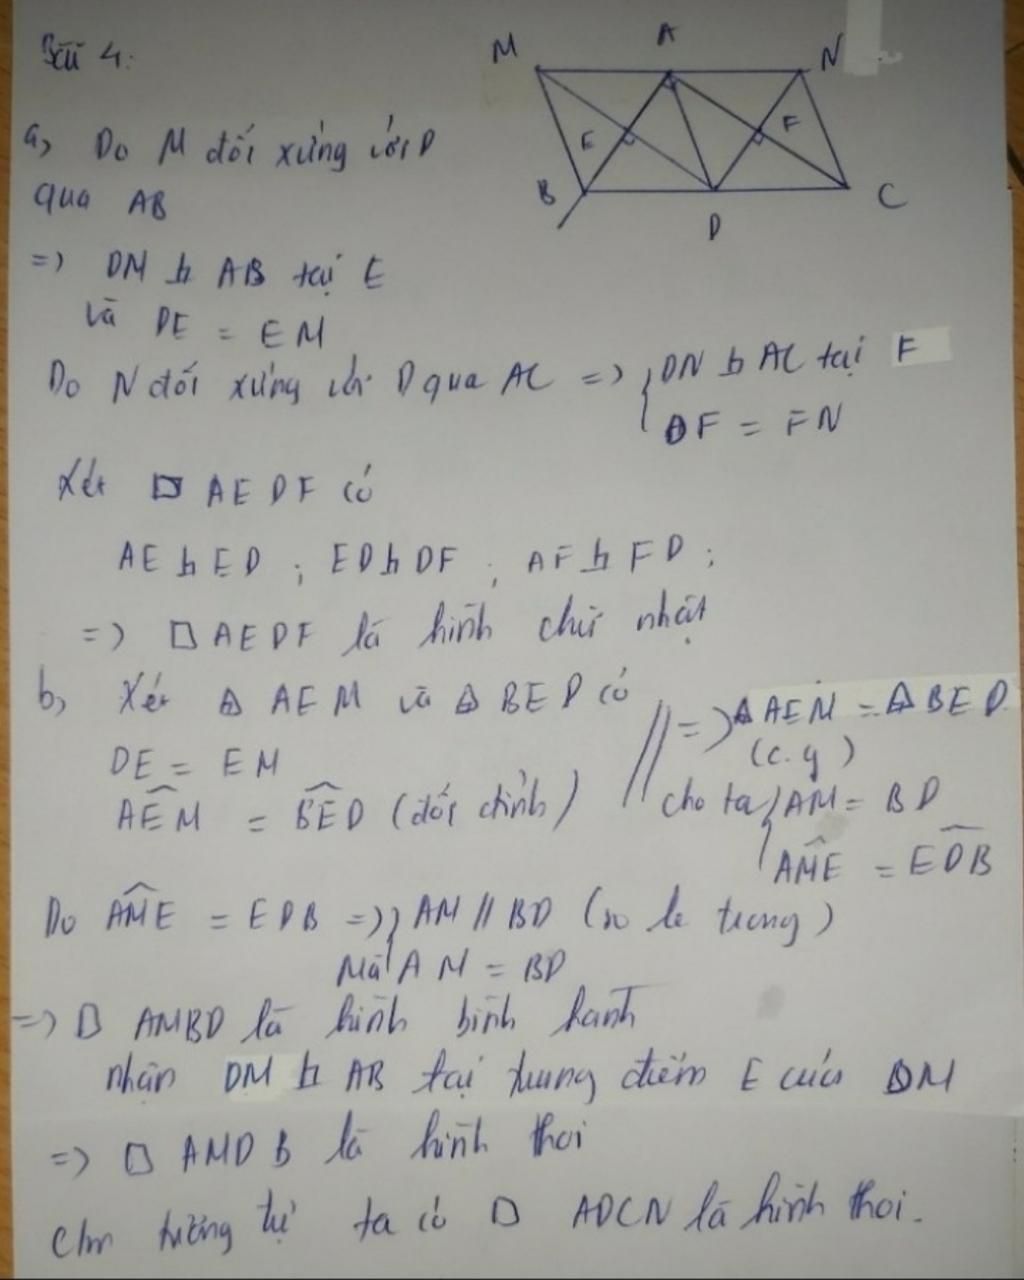 Bài 4:
M A N
E F
B D C
a, Do M đối xứng với D
qua AB
=> DM ⊥ AB tại E
và DE = EM
Do N đối xứng với D qua AC => { DN ⊥ AC tại F
DF = FN
Xét □ AEDF có
AE ⊥ ED ; ED ⊥ DF ; AF ⊥ FD ;
=> □ AEDF là hình chữ nhật
b, Xét Δ AEM và Δ BED có
DE = EM
AÊM = BÊD (đối đỉnh)
=> Δ AEM = Δ BED
(c.g)
cho ta { AM = BD
AM̂E = ED̂B
Do AM̂E = EDB => } AM // BD (so le trong)
Mà AM = BD
=> □ AMBD là hình bình hành
nhận DM ⊥ AB tại trung điểm E của DM
=> □ AMDB là hình thoi
Cm tương tự ta có □ ADCN là hình thoi.